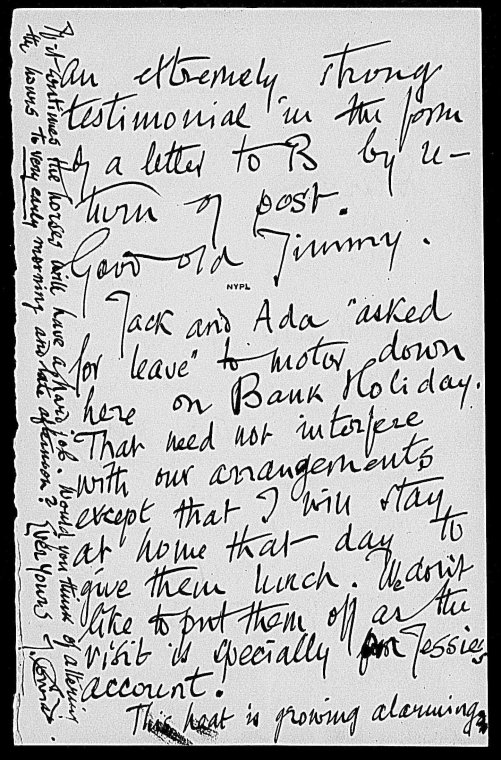 an extremely strong
testimonial in the form
of a letter to B by re-
turn of post.
Good old Jimmy.
NYPL
Jack and Ada "asked
for leave" to motor down
here on Bank Holiday.
That need not interfere
with our arrangements
except that I will stay
at home that day to
give them lunch. We don't
like to put them off as the
visit is specially for Jessie's
account.
This heat is growing alarming.
If it continues the horses will have a hard job. Would you think of altering
the hours to very early morning and late afternoon? Ever Yours J. Conrad.